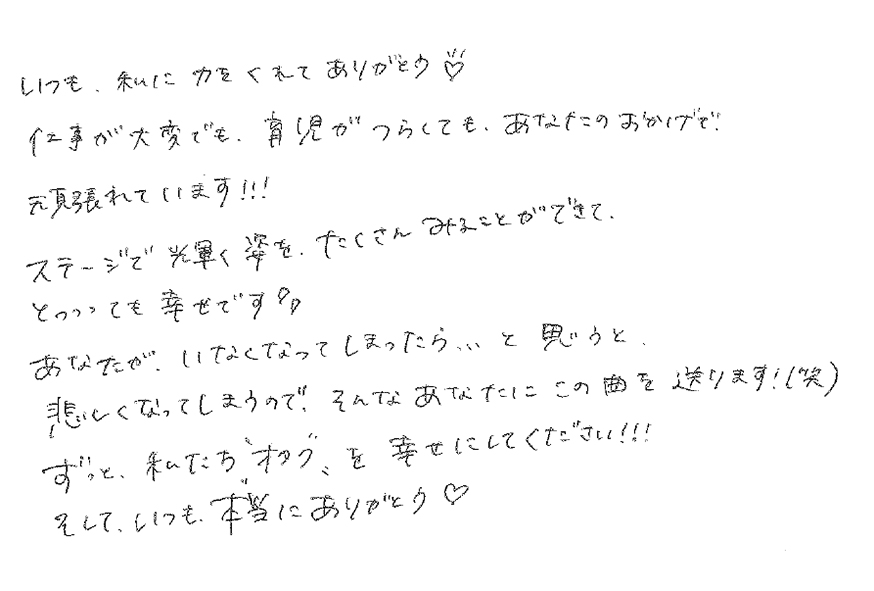 いつも、私に力をくれてありがとう♡
仕事が大変でも、育児がつらくても、あなたのおかげで、
頑張れています!!!
ステージで光輝く姿を、たくさんみることができて、
とっっっても幸せです
あなたが、いなくなってしまったら...と思うと、
悲しくなってしまうので、そんなあなたにこの曲を送ります!(笑)
ずっと、私たち〝オタク〟を幸せにしてください!!!
そして、いつも、本当にありがとう♡